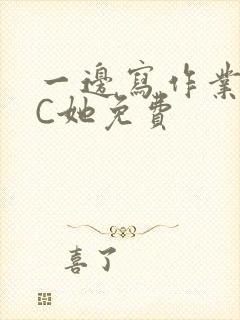 一邊寫作業
C她免費
喜了